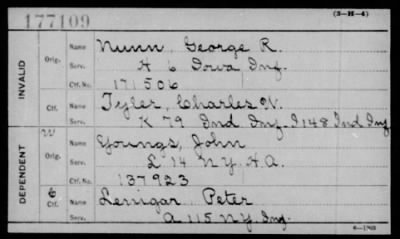 177109
(3-H-4)
INVALID
Orig.
Name Nunn, George R.
Serv. H 6 Iowa Inf.
Ctf. No. 171506
Ctf.
Name Tyler, Charles W.
Serv. K 79 Ind Inf. I 148 Ind Inf
DEPENDENT
W
Orig.
Name Youngs, John
Serv. L 14 N.Y. H.A.
Ctf. No. 137923
Ctf.
Name Lenigar, Peter
Serv. A 115 N.Y. Inf.